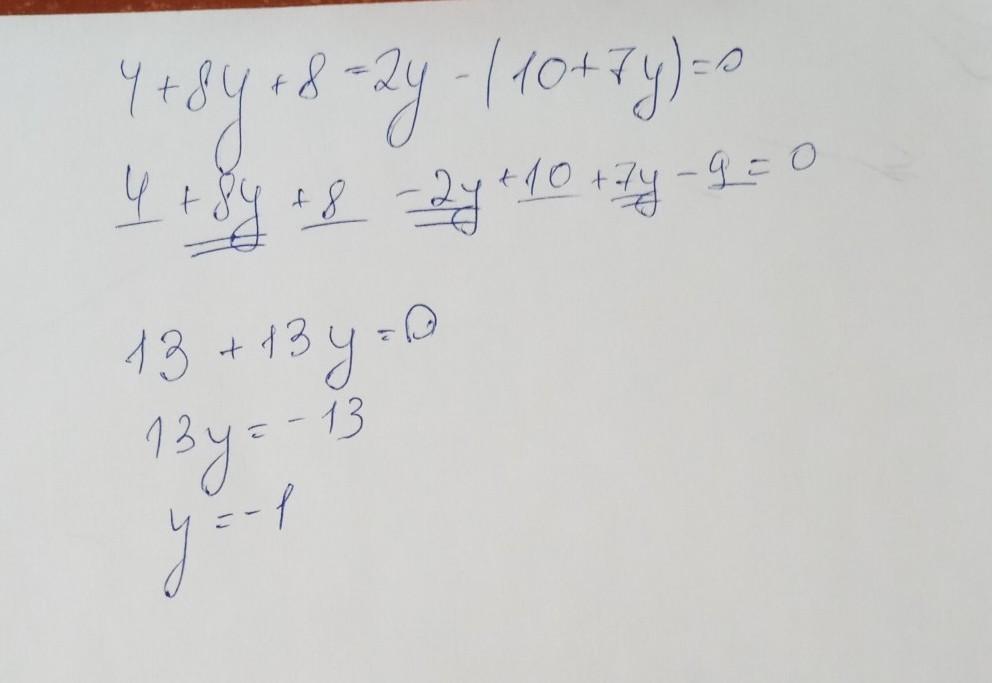 4+8y+8=2y-(10+7y)=0
4+8y+8-2y+10+7y-9=0
13+13y=0
13y=-13
y=-1